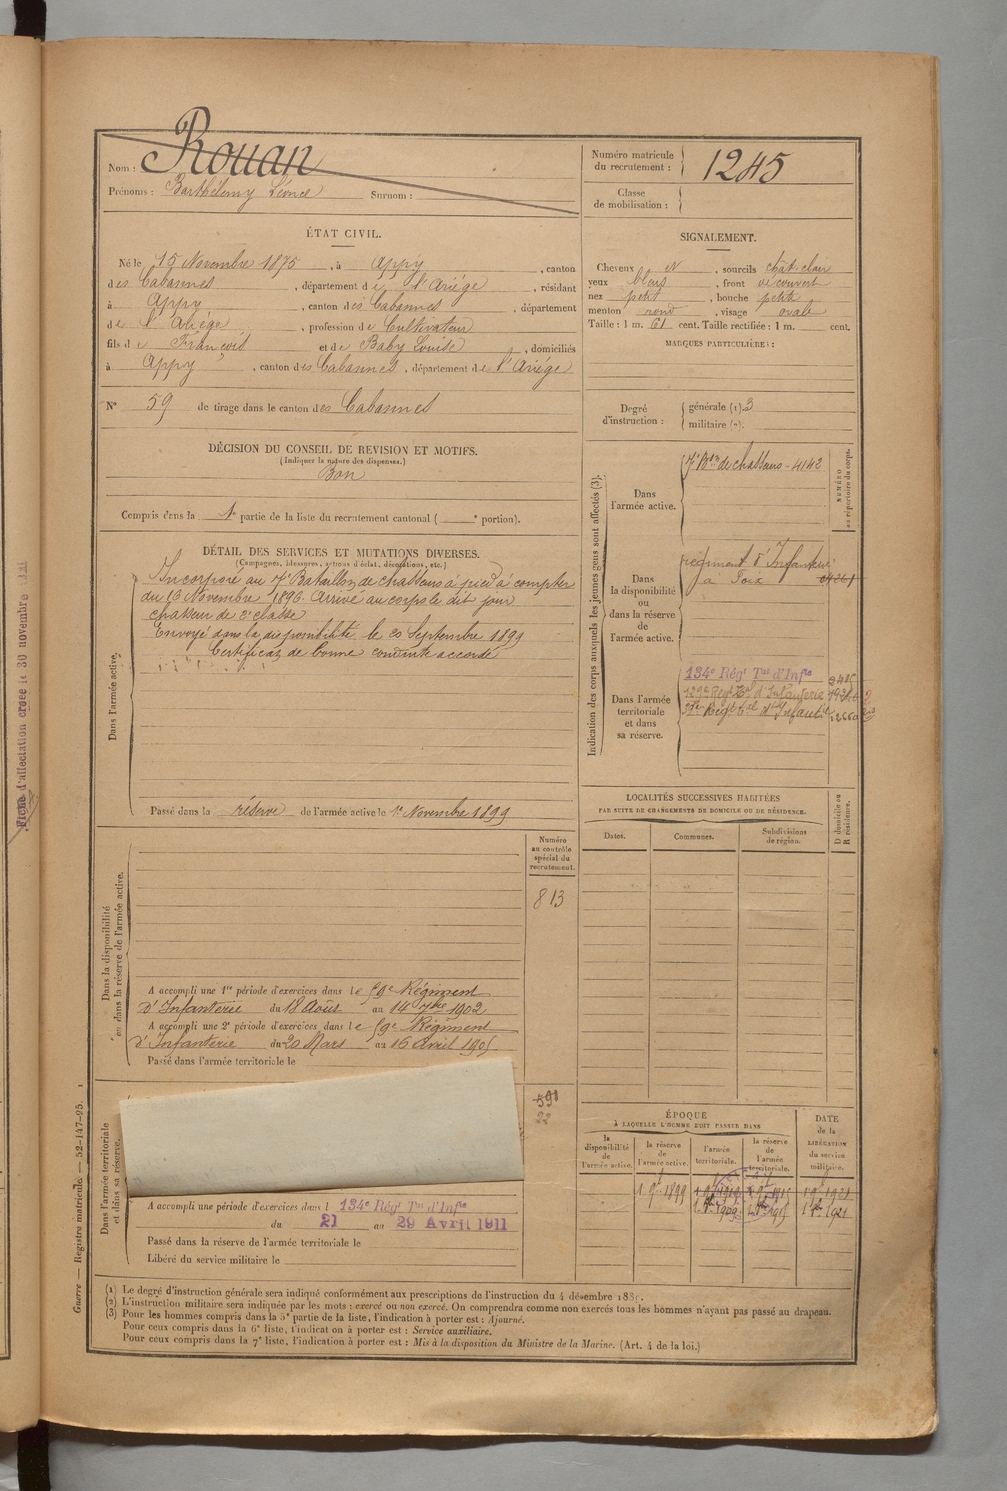 Nom : Rouan
Prénoms : Barthélemy Léonce Surnom :
Numéro matricule
du recrutement : 1245
Classe
de mobilisation :
ÉTAT CIVIL.
Né le 15 Novembre 1875, à Appy, canton
des Cabannes, département de l'Ariége, résidant
à Appy, canton des Cabannes, département
de l'Ariége, profession de Cultivateur
fils de François et de Baby Louise, domiciliés
à Appy, canton des Cabannes, département de l'Ariége
N° 59 de tirage dans le canton des Cabannes
SIGNALEMENT.
Cheveux , sourcils chât. clair
yeux bleus, front découvert
nez petit, bouche petite
menton rond, visage ovale
Taille : 1 m. 61 cent. Taille rectifiée : 1 m. cent.
MARQUES PARTICULIÈRES :
Degré
d'instruction :
générale (1). 3
militaire (2).
DÉCISION DU CONSEIL DE REVISION ET MOTIFS.
(Indiquer la nature des dispenses.)
Bon
Compris dans la 1e partie de la liste du recrutement cantonal ( e portion).
DÉTAIL DES SERVICES ET MUTATIONS DIVERSES.
(Campagnes, blessures, actions d'éclat, décorations, etc.)
Dans l'armée active.
Incorporé au 7e Bataillon de chasseurs à pied à compter
du 16 Novembre 1896. Arrivé au corps le dit jour
chasseur de 2e classe
Envoyé dans la disponibilité le 20 Septembre 1899
Certificat de bonne conduite accordé
Passé dans la réserve de l'armée active le 1er Novembre 1899
Indication des corps auxquels les jeunes gens sont affectés (3).
NUMÉRO
au répertoire du corps.
Dans
l'armée active.
7e Bon de chasseurs - 4142
Dans
la disponibilité
ou
dans la réserve
de
l'armée active.
régiment d'Infanterie
à Foix
Dans l'armée
territoriale
et dans
sa réserve.
134e Régt Tal d'Infie
129e Régt Tal d'Infanterie
LOCALITÉS SUCCESSIVES HABITÉES
PAR SUITE DE CHANGEMENTS DE DOMICILE OU DE RÉSIDENCE.
Dates. Communes. Subdivisions
de région.
D domicile ou
R résidence.
Numéro
au contrôle
spécial du
recrutement.
813
Dans la disponibilité
ou dans la réserve de l'armée active.
A accompli une 1re période d'exercices dans le 59e Régiment
d'Infanterie du 18 Août au 14 7bre 1902
A accompli une 2e période d'exercices dans le 59e Régiment
d'Infanterie du 20 Mars au 16 Avril 1905
Passé dans l'armée territoriale le
591
22
Dans l'armée territoriale
et dans sa réserve.
A accompli une période d'exercices dans l 134e Régt Tal d'Infie
du 21 au 29 Avril 1911
Passé dans la réserve de l'armée territoriale le
Libéré du service militaire le
ÉPOQUE
À LAQUELLE L'HOMME DOIT PASSER DANS
la
disponibilité
de
l'armée active.
la réserve
de
l'armée active.
l'armée
territoriale.
la réserve
de
l'armée
territoriale.
DATE
de la
LIBÉRATION
du service
militaire.
(1) Le degré d'instruction générale sera indiqué conformément aux prescriptions de l'instruction du 4 décembre
(2) L'instruction militaire sera indiquée par les mots : exercé ou non exercé. On comprendra comme non exercés tous les hommes n'ayant pas passé au drapeau.
(3) Pour les hommes compris dans la 5e partie de la liste, l'indication à porter est : Ajourné.
Pour ceux compris dans la 6e liste, l'indication à porter est : Service auxiliaire.
Pour ceux compris dans la 7e liste, l'indication à porter est : Mis à la disposition du Ministre de la Marine. (Art. 4 de la loi.)
Guerre — Registre matricule. — 52-147-95.